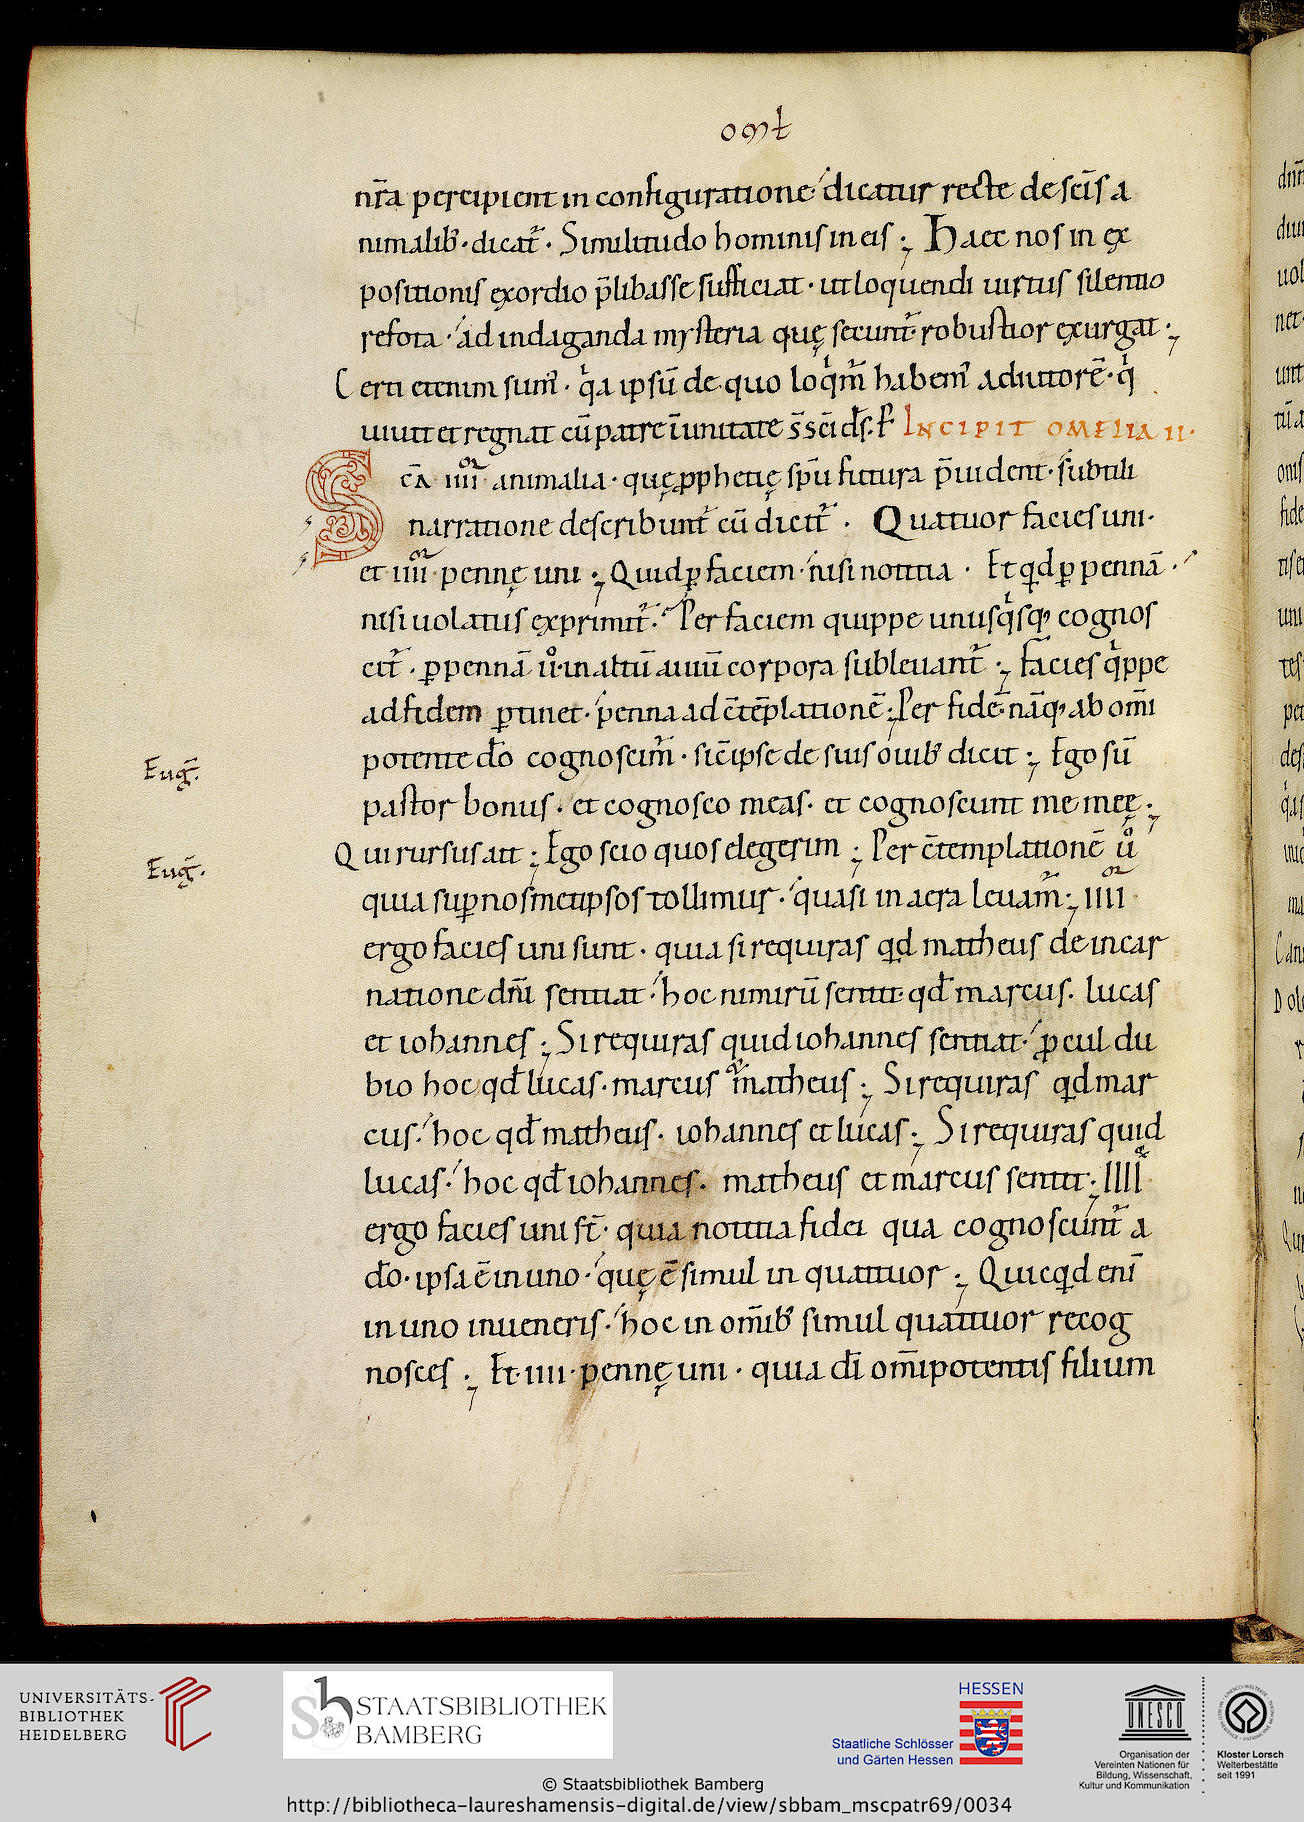 omł
nr̄a percipient in configuratione dicatur recte de sc̄is a
nimalib; · dicat᷑ · Similitudo hominis in eis ; Haec nos in ex
positionis exordio p̄libasse sufficiat · ut loquendi uirtus silentio
refota · ad indaganda mysteria quę secunt᷑ robustior exurgat ·;
Certi etenim sum᷒ · qͥa ipsū de quo loqͥm᷒ habem᷒ adiutorē · qͥ
uiuit et regnat cū patre ī unitate s̄ sc̄i d̄s. P̄ INCIPIT OMELIA II ·
Sc̄a iiiiᵒʳ animalia · quę ꝓphetię sp̄u futura p̄uident · subtili
narratione describunt᷑ cū dicit᷑ · Quatuor facies uni ·
et iiiiᵒʳ pennę uni ; Quid ꝑ faciem · nisi notitia · Et qd ꝑ pennā ·
nisi uolatus exprimit᷑ · Per faciem quippe unusqͥsq; cognos
cit᷑ · ꝑ pennā uᵒ in altū auiū corpora subleuant᷑ ; Facies qͥppe
ad fidem ꝑtinet · penna ad c̄tēplationē ; Per fidē nāq; ab om̄i
potente d̄o cognoscim᷒ · sic̄ ipse de suis ouib; dicit ; Ego sū
Euḡ.
pastor bonus · et cognosco meas · et cognoscunt me meę ·;
Qui rursus ait ; Ego scio quos elegerim ; Per c̄templationē uᵒ
Euḡ.
quia suꝑ nosmetipsos tollimur · quasi in aera leuam᷒ ; iiiiᵒʳ
ergo facies uni sunt · quia si requiras qd matheus de incar
natione dn̄i sentiat · hoc nimirū sentit qđ marcus · lucas
et iohannes ; Si requiras quid iohannes sentiat · ꝓcul du
bio hoc qđ lucas · marcus & matheus ; Si requiras qd mar
cus · hoc qđ matheus · iohannes et lucas ; Si requiras quid
lucas · hoc qđ iohannes · matheus et marcus sentit ; iiiiᵒʳ
ergo facies uni st̄ · quia notitia fidei qua cognoscunt᷑ a
d̄o · ipsa ē in uno · quę ē simul in quattuor ; Quicqd enī
in uno inueneris · hoc in om̄ib; simul quattuor recog
nosces ; Et iiii · pennę uni · quia dī om̄ipotentis filium
UNIVERSITÄTS-
BIBLIOTHEK
HEIDELBERG
STAATSBIBLIOTHEK
BAMBERG
HESSEN
Staatliche Schlösser
und Gärten Hessen
UNESCO
Organisation der
Vereinten Nationen für
Bildung, Wissenschaft,
Kultur und Kommunikation
Kloster Lorsch
Welterbestätte
seit 1991
© Staatsbibliothek Bamberg
http://bibliotheca-laureshamensis-digital.de/view/sbbam_mscpatr69/0034